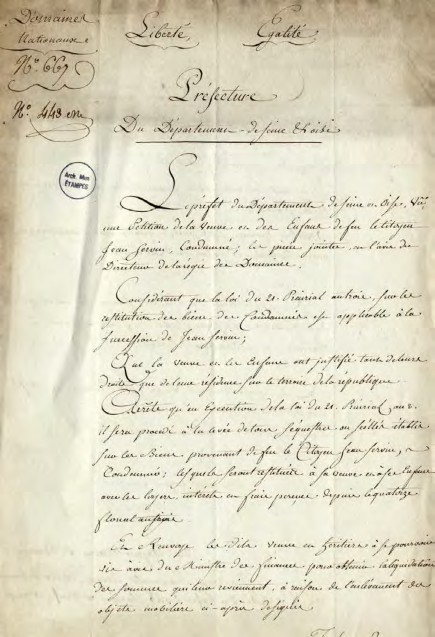 Domaines
Nationaux
Liberté Egalité
N.° 667
N.° 443
Préfecture
Du Département de Seine & Oise
Arch. Mun.
ETAMPES
Le préfet du Département de Seine et Oise, Vu
une Petition de la veuve et des Enfans de feu le citoyen
Jean Condamné; les pieces jointes et l'avis du
Directeur de la régie des Domaines.
Considérant que la loi du 21 Prairial an trois, sur la
restitution des biens des Condamnés est applicable à la
succession de Jean
Que la veuve et les Enfans ont justifié tant de leurs
droits que de leur résidence sur le terrein de la république
Arrête qu'en Execution de la loi du 21 Prairial an 3.
il sera procédé à la levée de tous séquestres ou scellés établis
sur les Biens provenant de feu le Citoyen Jean
Condamné; lesquels seront restitués à sa veuve et à ses Enfans
avec les loyers, intérêts et fruits perçus depuis le quatorze
floreal
Et Renvoye les dits veuve et héritiers à se pourvoir
du Ministre des finances pour obtenir la liquidation
des sommes qui leur reviennent, à raison de l'enlèvement des
objets mobiliers ci-après désignés